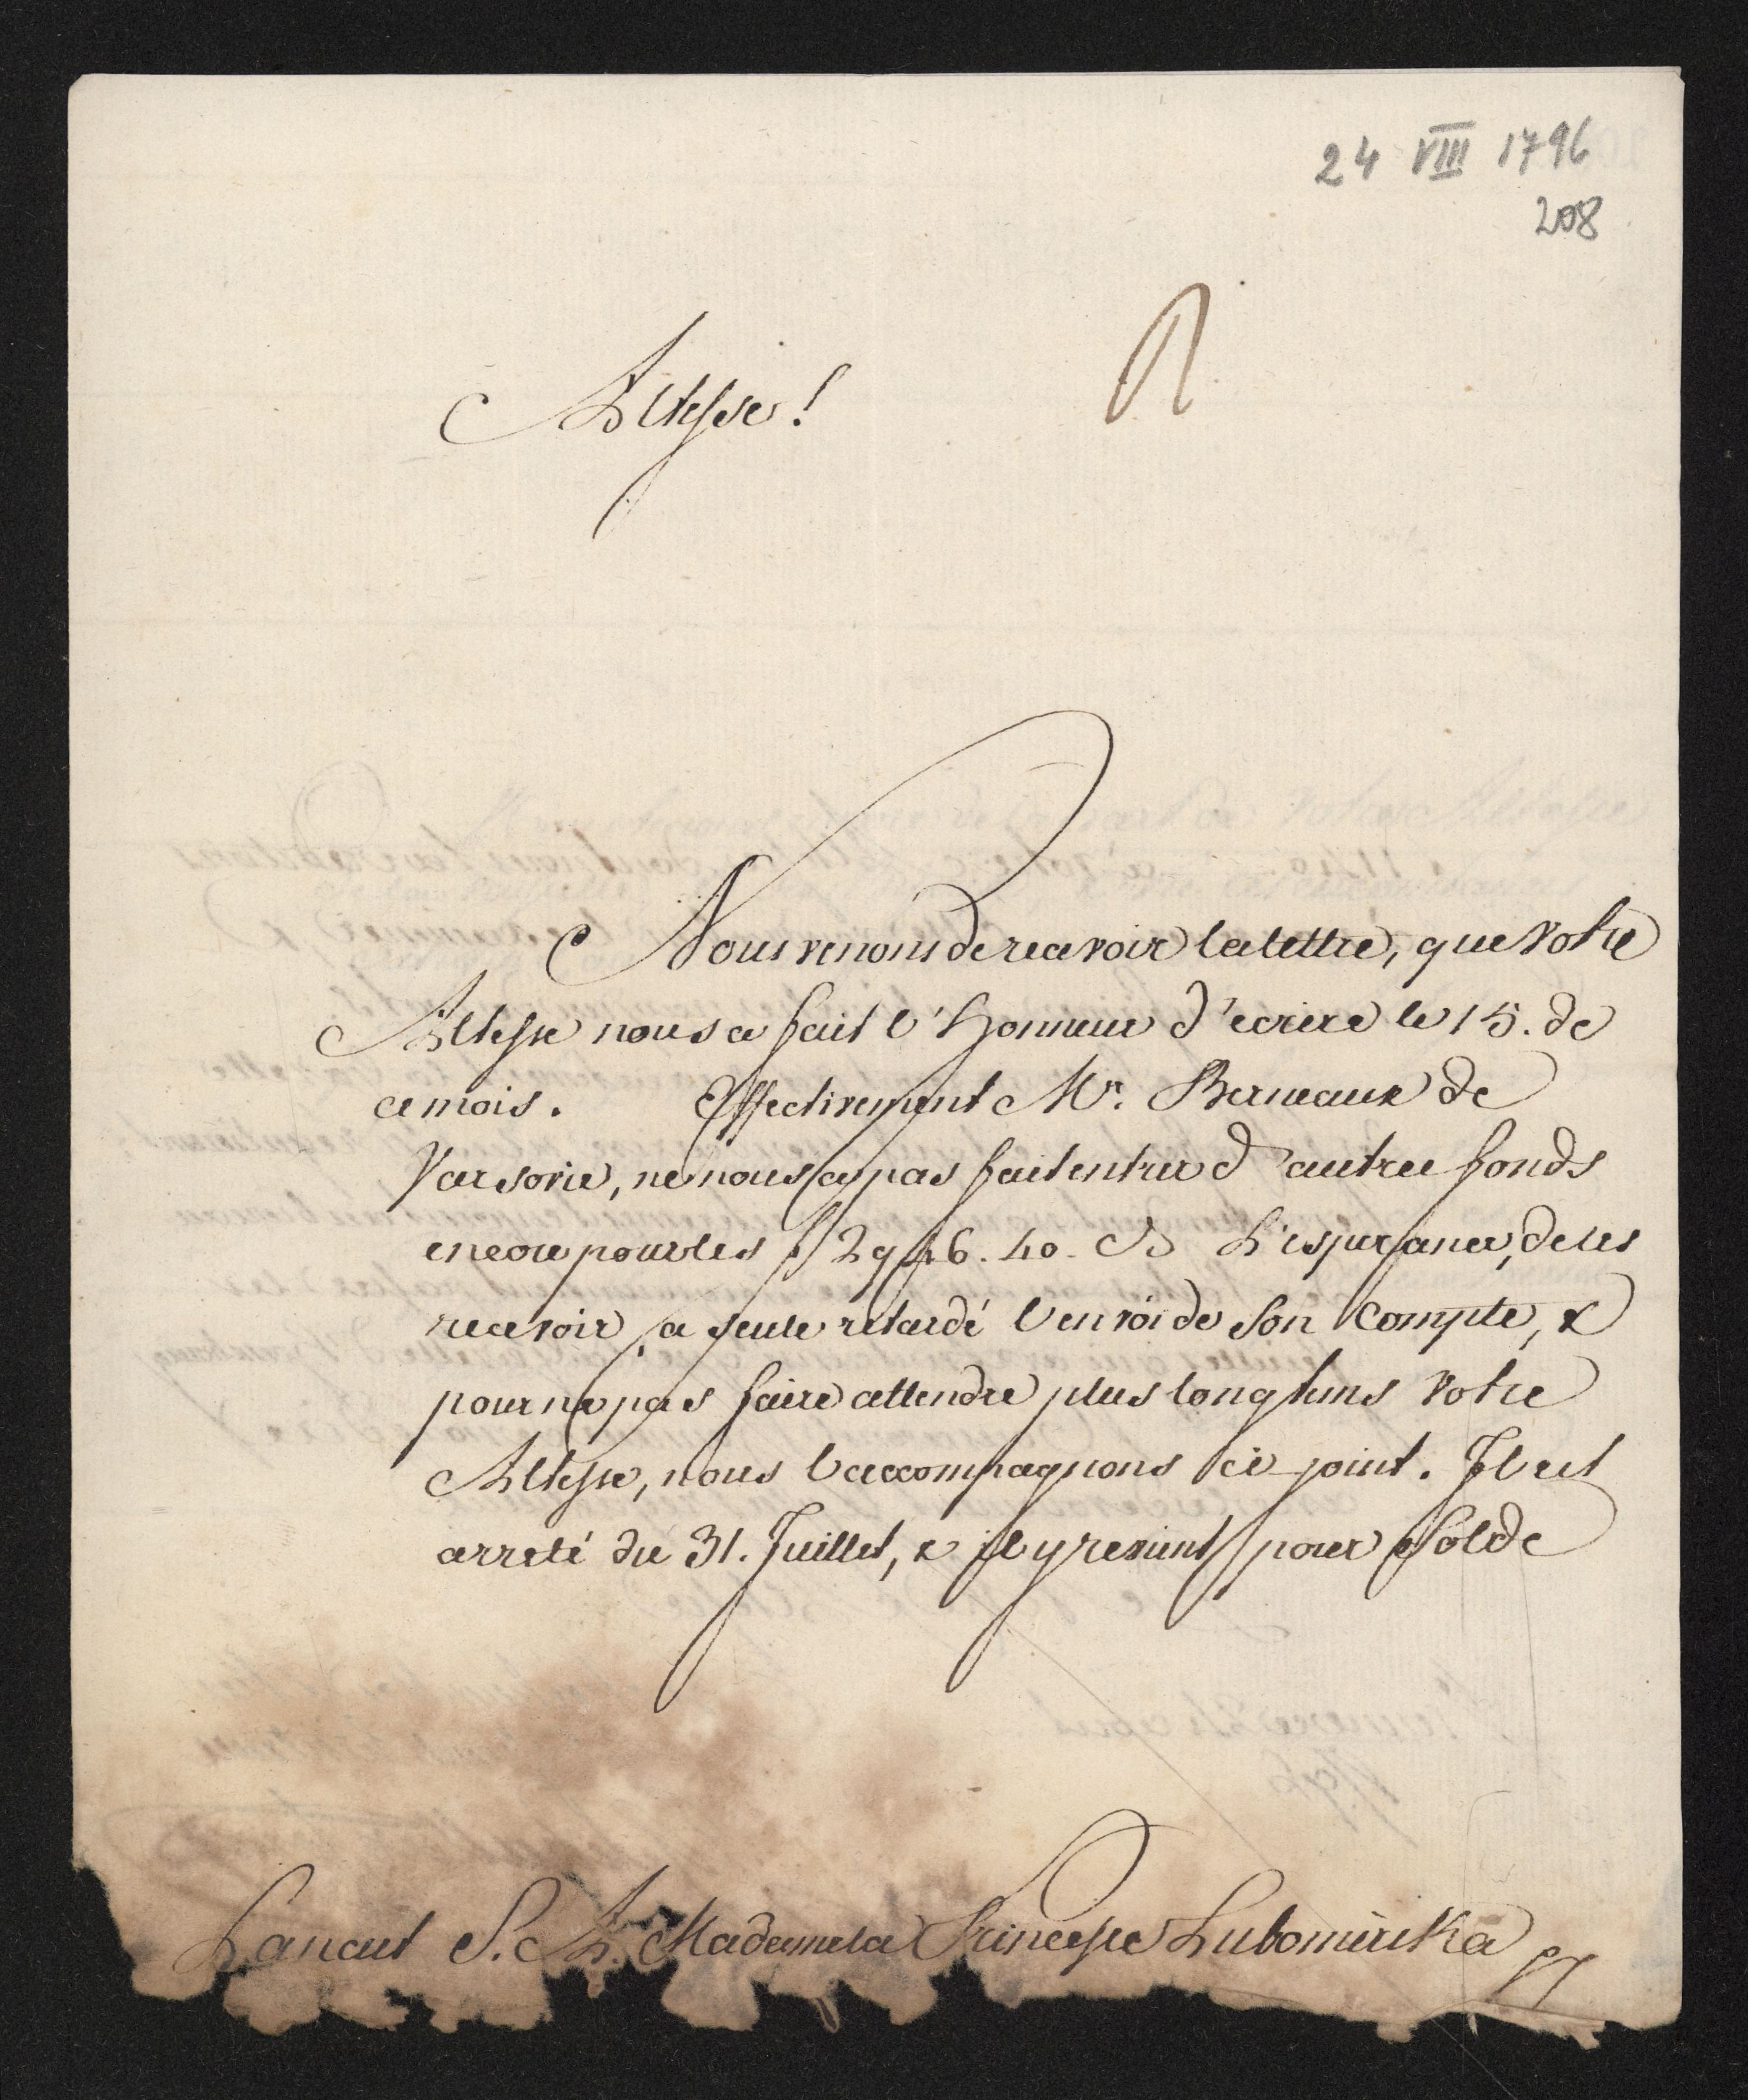 24 VIII 1796
208
Altesse!
Nous venons de recevoir la lettre, que Votre
Altesse nous a fait l'Honneur d'ecrire le 15. de
ce mois. Effectivement Mr. Berneaux de
Varsovie, ne nous a pas fait entrer d'autre fonds
encore pour les f 2946. 40. L'esperance, de les
recevoir, a seule retardé l'envoi de Son Compte, &
pour ne pas faire attendre plus longtems Votre
Altesse, nous l'accompagnons ci joint. Il est
arreté du 31. Juillet, & il y revient pour Solde
Lancut S. A. Madame la Princesse Lubomirska